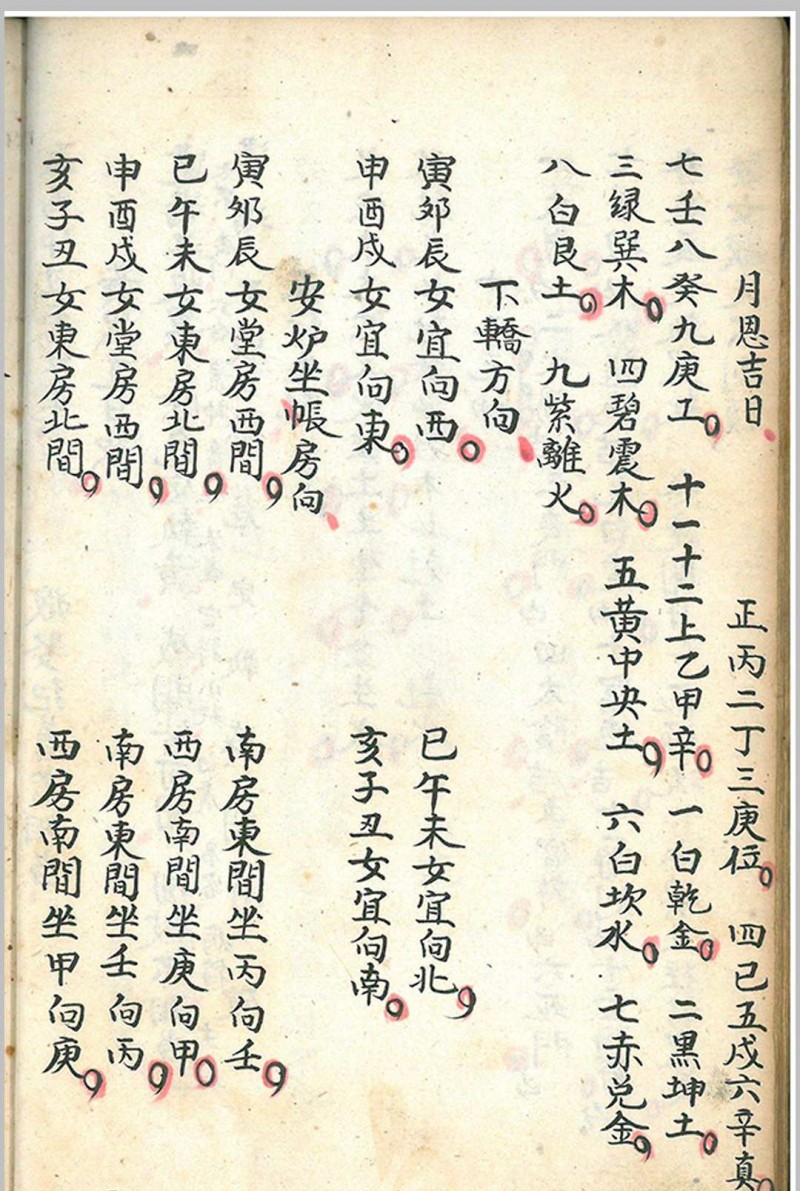 月恩吉日　正丙二丁三庚位。四已五戍六辛真。
七壬八癸九庚工。十一十二上乙甲辛。一白乾金。二黑坤土。
三緑巽木。四碧震木。五黄中央土。六白坎水。七赤兑金。
八白艮土。九紫離火。
下轎方向
寅夘辰女宜向西。已午未女宜向北。
申酉戍女宜向東。亥子丑女宜向南。
安炉坐帳房向
寅夘辰女堂房西間。南房東間坐丙向壬。
已午未女東房北間。西房南間坐庚向甲。
申酉戍女堂房西間。南房東間坐壬向丙。
亥子丑女東房北間。西房南間坐甲向庚。